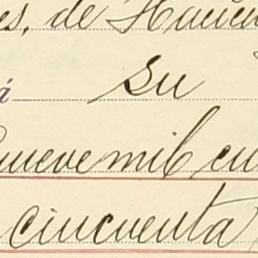 es, de Hacien
á su
nueve mil cu
cincuenta